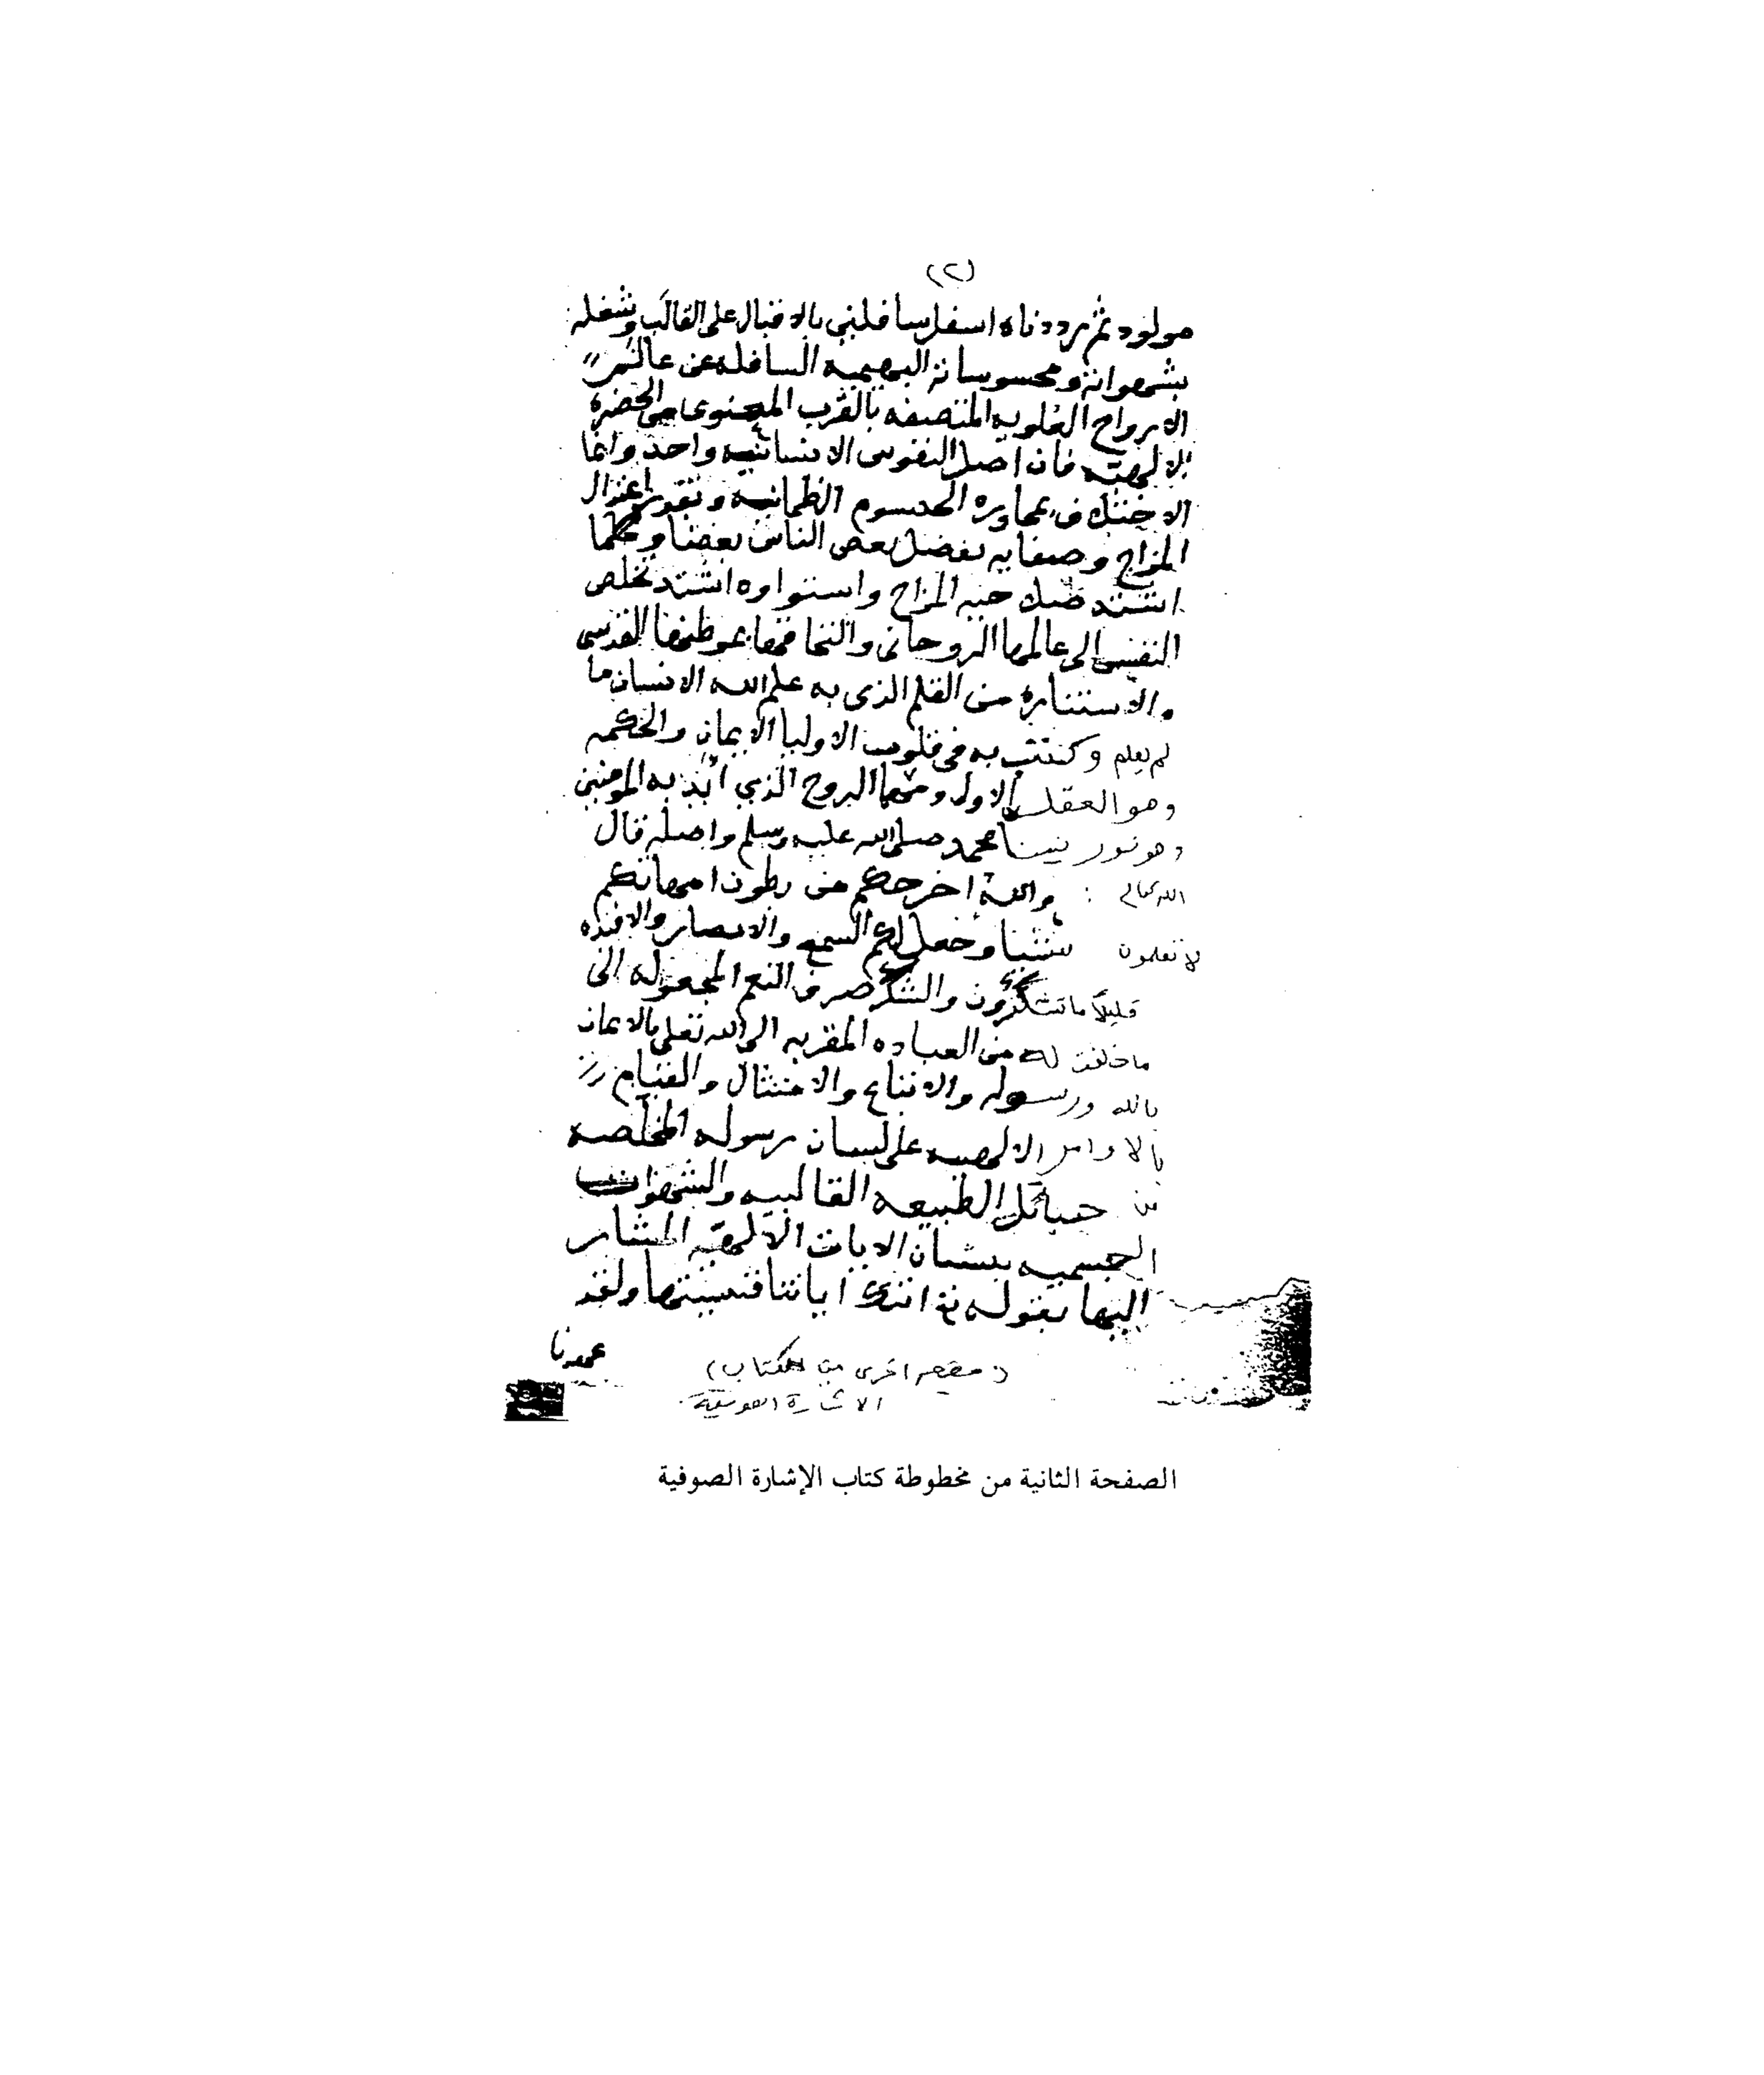 (٢)
مولود ثم رددناه اسفل سافلين بالاقبال على القالب وشغله
بشهواته ومحسوساته البهيميه السافله عن عالم
الارواح العلويه المتصفه بالقرب المعنوي من الحضرة
الالهيه فان اصل النفوس الانسانيه واحد وانما
الاختلاف بمجاورة الجسوم الظلمانيه وبقدر اعتدال
المزاج وصفايه يفضل بعض الناس بعضا وكلما
اشتد المزاج واستواوه اشتد تخلص
النفس الى عالمها الروحاني والتحاقها بموطنها القدسي
والاستنارة من القلم الذى به علم الله الانسان ما
لم يعلم وكتب به في قلوب الاوليا الايمان والحكمه
وهو العقل الاول ومنها الروح الذي ايد به المومنين
وهو نور نبينا محمد صلى الله عليه وسلم واصله قال
الله تعالى : والله اخرجكم من بطون امهاتكم
لا تعلمون شيئا وجعل لكم السمع والابصار والافئده
قليلاً ما تشكرون والشكر صرف النعم المجعوله الى
ما خلقت له من العباده المقربه الى الله تعلى بالايمان
بالله ورسوله والاتباع والامتثال والقيام
بالاوامر الالهيه على لسان رسوله المخلصه
من حبائل الطبيعه القالبيه والشهوات
الجسميه بنسيان الايات الالهيه المشار
اليها بقوله اتتك اياتنا فنسيتها ولقد
عهدنا
( اخرى من الكتاب)
الاشارة الصوفية
الصفحة الثانية من مخطوطة كتاب الإشارة الصوفية